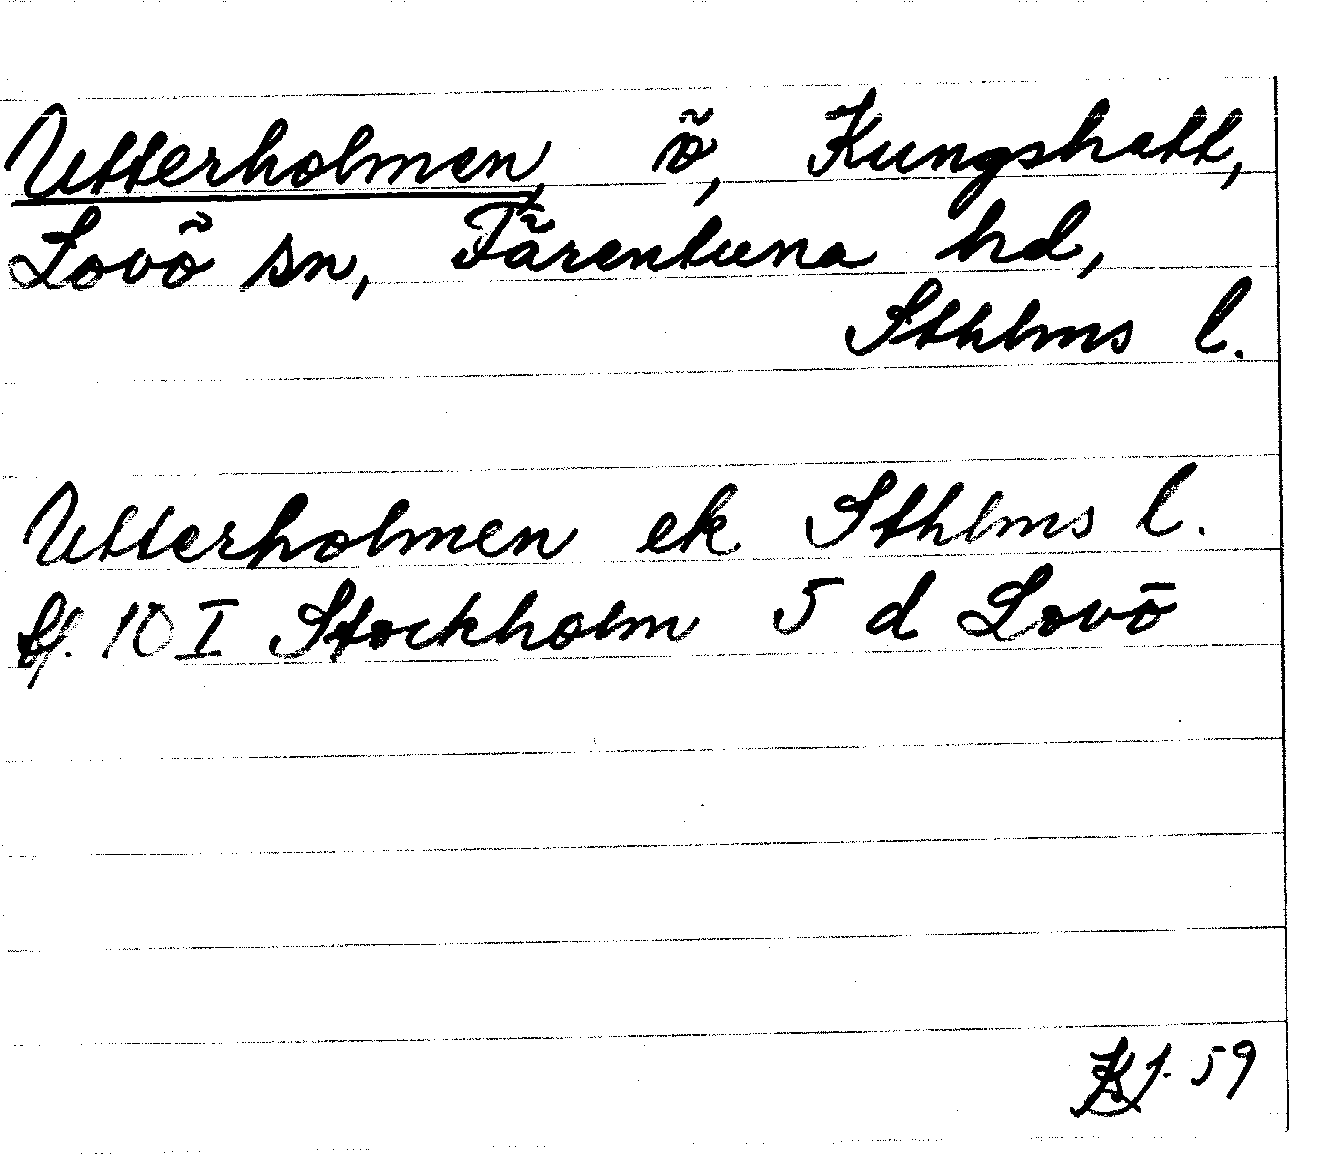 Utterholmen, ö, Kungshatt,
Lovö sn, Färentuna hd,
Sthlms l.
Utterholmen ek Sthlms l.
bl. 10 I Stockholm 5 d Lovö
59